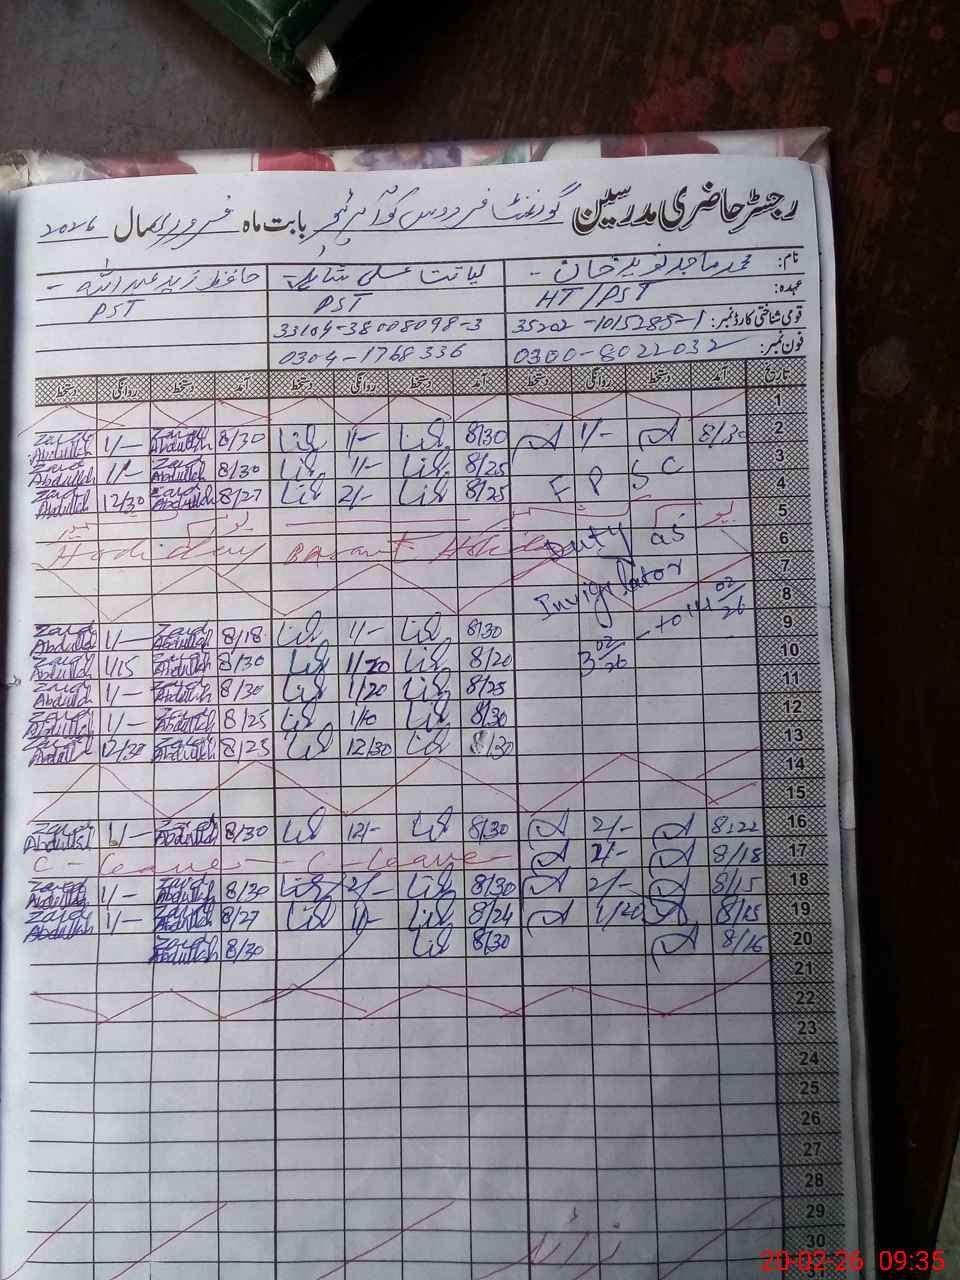 رجسٹر حاضری مدرسین گورنمنٹ فردوس بابت ماہ فروری سال 2026
نام: محمد ماجد نوید خان - لیاقت علی حافظ زید عبداللہ -
عہدہ: HT/PST PST PST
قومی شناختی کارڈ نمبر: 35202-1015285-1 33104-38008098-3
فون نمبر: 0300-8022032 0304-1768336
تاریخ آمد دستخط روانگی دستخط آمد دستخط روانگی دستخط آمد دستخط روانگی دستخط
1
2 8/30 1/- 8/30 1/- 8/30 Zaid Abdullah 1/- Zaid Abdullah
3 8/25 1/- 8/30 Zaid Abdullah Zaid Abdullah
4 F P S C 8/25 2/- 8/27 Zaid Abdullah 12/30 Zaid Abdullah
5 یوم کشمیر
6 Duty as Basant Holiday
7
8 Invigilator
9 8/30 1/- 8/18 Zaid Abdullah 1/- Zaid Abdullah
10 3 02/26 - to 14 02/26 8/20 1/20 8/30 Zaid Abdullah 1/15 Zaid Abdullah
11 8/25 1/20 8/30 Zaid Abdullah 1/- Zaid Abdullah
12 8/30 1/10 8/25 Zaid Abdullah 1/- Zaid Abdullah
13 8/30 12/30 8/25 Zaid Abdullah Zaid Abdullah
14
15
16 8:22 2/- 8/30 12/- 8/30 Zaid Abdullah 1/- Zaid Abdullah
17 8/18 2/- C - Leave C - Leave
18 8/15 2/- 8/30 2/- 8/30 Zaid Abdullah 1/- Zaid Abdullah
19 8/15 1/20 8/24 1/- 8/27 Zaid Abdullah 1/- Zaid Abdullah
20 8/16 8/30 8/30 Zaid Abdullah
21
22
23
24
25
26
27
28
29
30
20-02-26 09:35